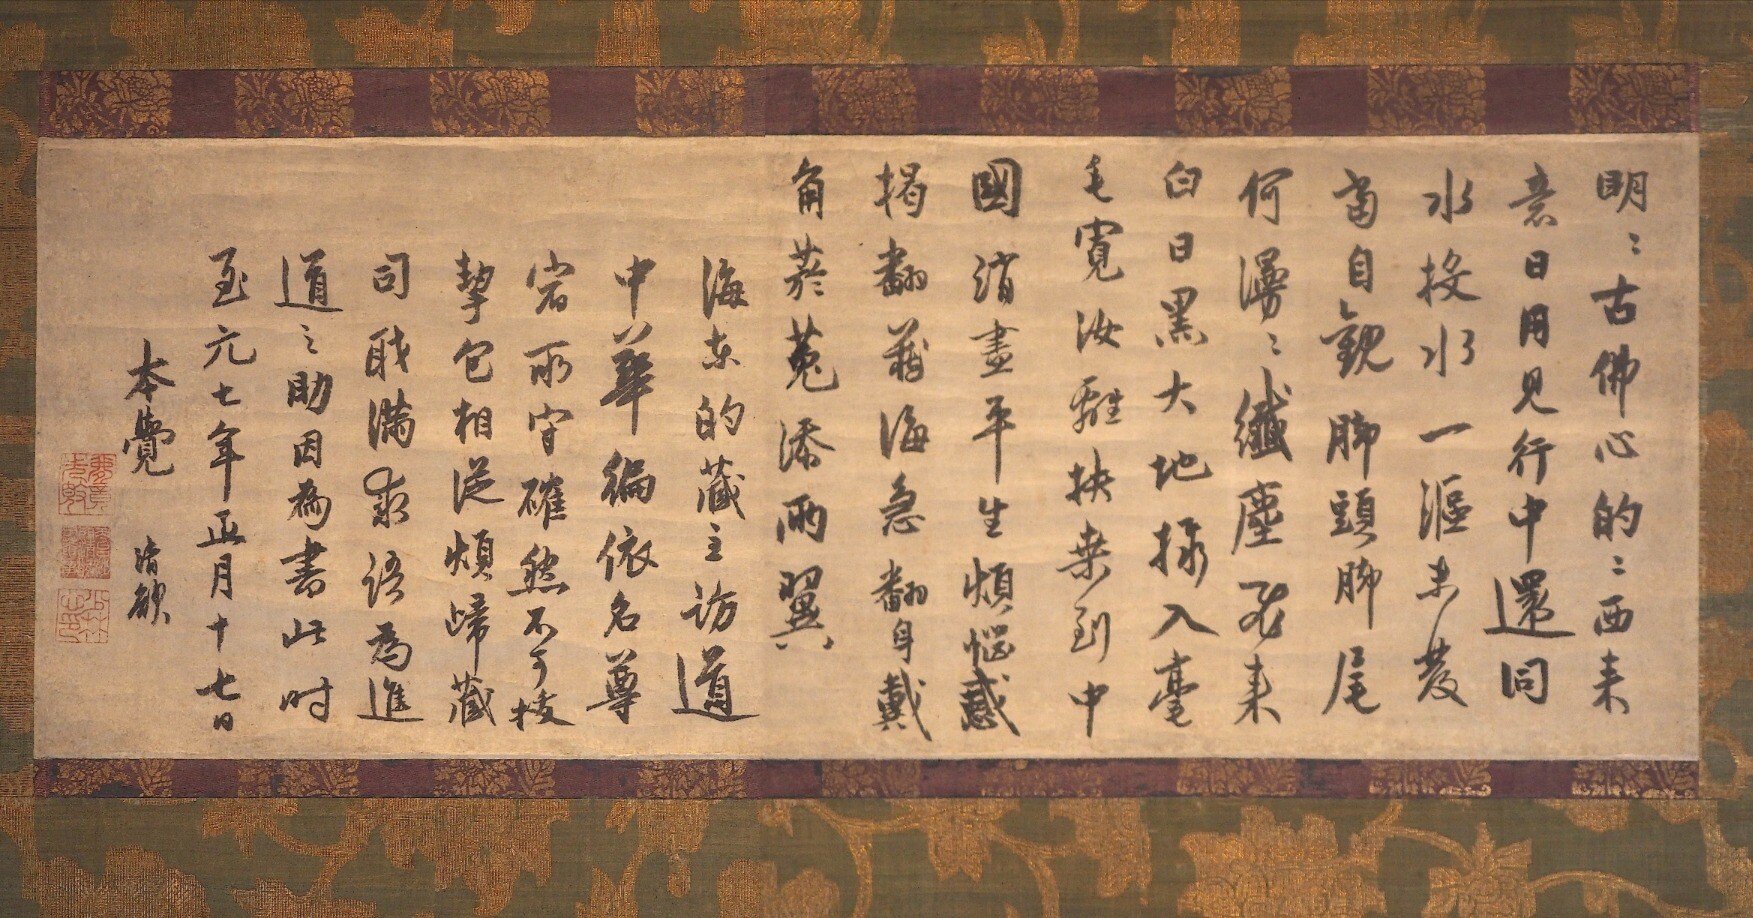 明〻古佛心的〻西来
意日用見行中還同
水投水一漚未發
當自觀脚頭脚尾
何漫〻纖塵不来
白日黑大地入毫
毛寬汝離扶桒到中
國消盡平生煩惱惑
掲翻藏海急翻身戴
角菸菟添兩翼
海東的藏主訪道
中華徧依名尊
宿所守確然不可
挈包相從煩歸藏
司職滿求語為進
道之助因為書此時
至元七年正月十七日
本覺 清欲